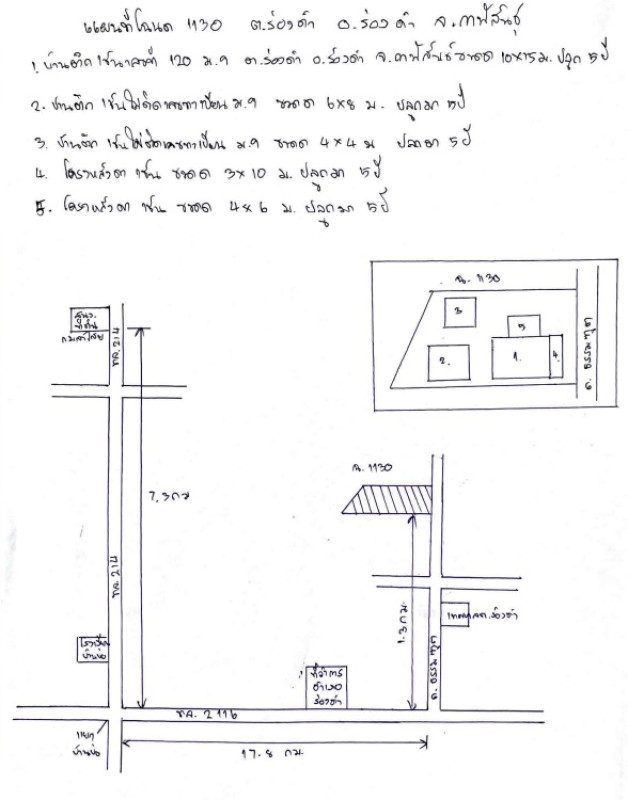 แผนที่โฉนด 1130 ต.ร่องคำ อ.ร่องคำ จ.กาฬสินธุ์
1. บ้านตึก 1ชั้น เลขที่ 120 ม.9 ต.ร่องคำ อ.ร่องคำ จ.กาฬสินธุ์ ขนาด 10x15 ม. ปลูก 5 ปี
2. บ้านตึก 1ชั้น ไม่ติดเลขทะเบียน ม.9 ขนาด 6x8 ม. ปลูกมา 5 ปี
3. บ้านตึก 1ชั้น ไม่ติดเลขทะเบียน ม.9 ขนาด 4x4 ม ปลูกมา 5 ปี
4. โครงหลังคา 1ชั้น ขนาด 3x10 ม. ปลูกมา 5 ปี
5. โครงหลังคา 1ชั้น ขนาด 4x6 ม. ปลูกมา 5 ปี
ฉ. 1130
3.
5
2.
1.
4.
ถ. ธรรมทูต
สนง.
ที่ดิน
กมลาไสย
ทล. 214
7.5 กม
ทล. 214
โรงเรียน
บ้านบ่อ
แยก
บ้านบ่อ
ทล. 2116
17.8 กม.
ที่ว่าการ
อำเภอ
ร่องคำ
ฉ. 1130
1.3 กม.
ถ. ธรรมทูต
เทศบาลต.ร่องคำ